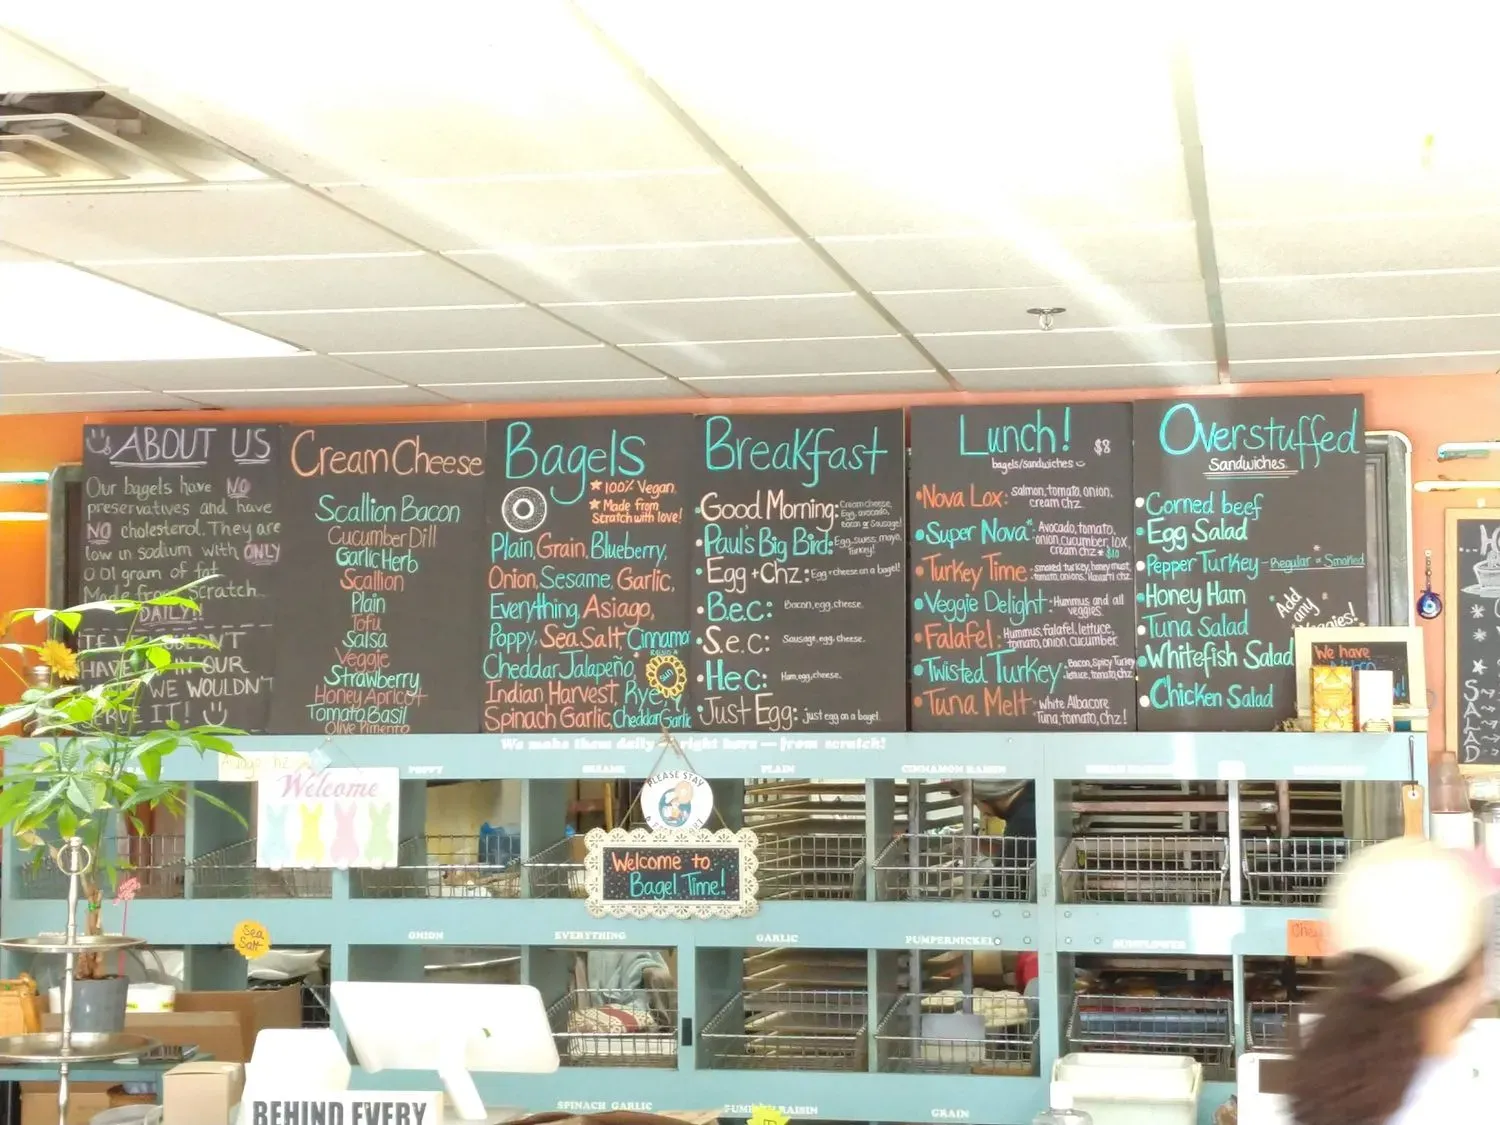 ABOUT US
Our bagels have NO
preservatives and have
NO cholesterol. They are
low in sodium with ONLY
0.01 gram of fat.
Made from Scratch
DAILY!!
IF WE WOULDN'T
HAVE IN OUR
WE WOULDN'T
SERVE IT!
Cream Cheese
Scallion Bacon
Cucumber Dill
Garlic Herb
Scallion
Plain
Tofu
Salsa
Veggie
Strawberry
Honey Apricot
Tomato Basil
Olive Pimento
Bagels
100% Vegan.
Made from
Scratch with love!
Plain, Grain, Blueberry,
Onion, Sesame, Garlic,
Everything, Asiago,
Poppy, Sea Salt, Cinnamo
Cheddar Jalapeño,
Indian Harvest, Rye,
Spinach Garlic, Cheddar Garlic
Breakfast
Good Morning: Cream cheese,
Egg, avocado,
bacon or Sausage!
Paul's Big Bird: Egg, swiss, mayo,
Turkey!
Egg + Chz: Egg + cheese on a bagel!
B.e.c: Bacon, egg, cheese.
S.e.c: Sausage, egg, cheese.
H.e.c: Ham, egg, cheese.
Just Egg: just egg on a bagel.
Lunch! $8
bagels/sandwiches
Nova Lox: salmon, tomato, onion,
cream chz.
Super Nova: Avocado, tomato,
onion, cucumber, lox,
cream chz * $10
Turkey Time: smoked turkey, honey must,
tomato, onions, Havarti chz.
Veggie Delight - Hummus and all
veggies.
Falafel: Hummus, falafel, lettuce,
tomato, onion, cucumber.
Twisted Turkey: Bacon, Spicy Turkey
lettuce, tomato, chz
Tuna Melt - white Albacore
Tuna, tomato, chz!
Overstuffed
Sandwiches
Corned beef
Egg Salad
Pepper Turkey - Regular or Smoked
Honey Ham
Tuna Salad
Whitefish Salad
Chicken Salad
Add
any
Veggies!
We have
Nitro
SALAD
We make them daily - right here - from scratch!
POPPY
SESAME
PLAIN
CINNAMON RAISIN
Welcome
PLEASE STAY
Welcome to
Bagel Time!
Sea
Salt
ONION
EVERYTHING
GARLIC
PUMPERNICKEL
SUNFLOWER
SPINACH GARLIC
GRAIN
BEHIND EVERY